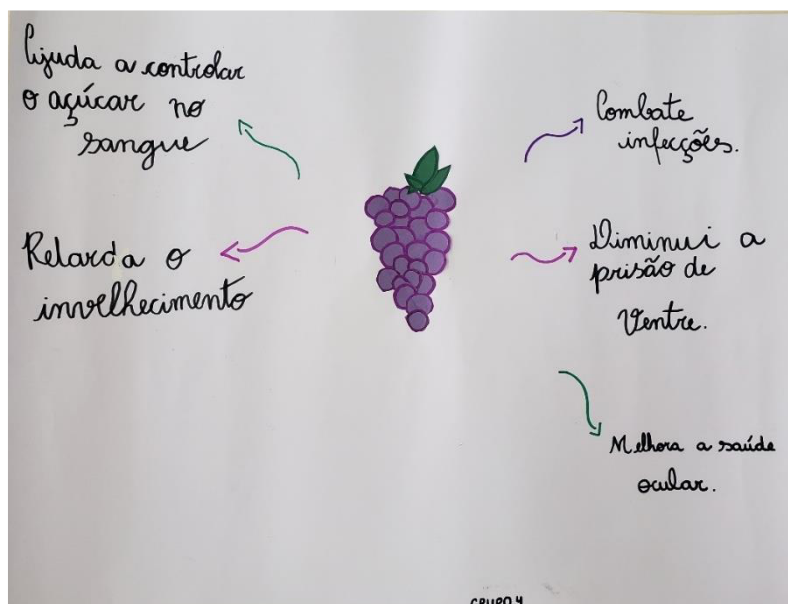 Ajuda a controlar
o açúcar no
sangue
Retarda o
invelhecimento
Combate
infecções.
Diminui a
prisão de
Ventre.
Melhora a saúde
ocular.
GRUPO 4